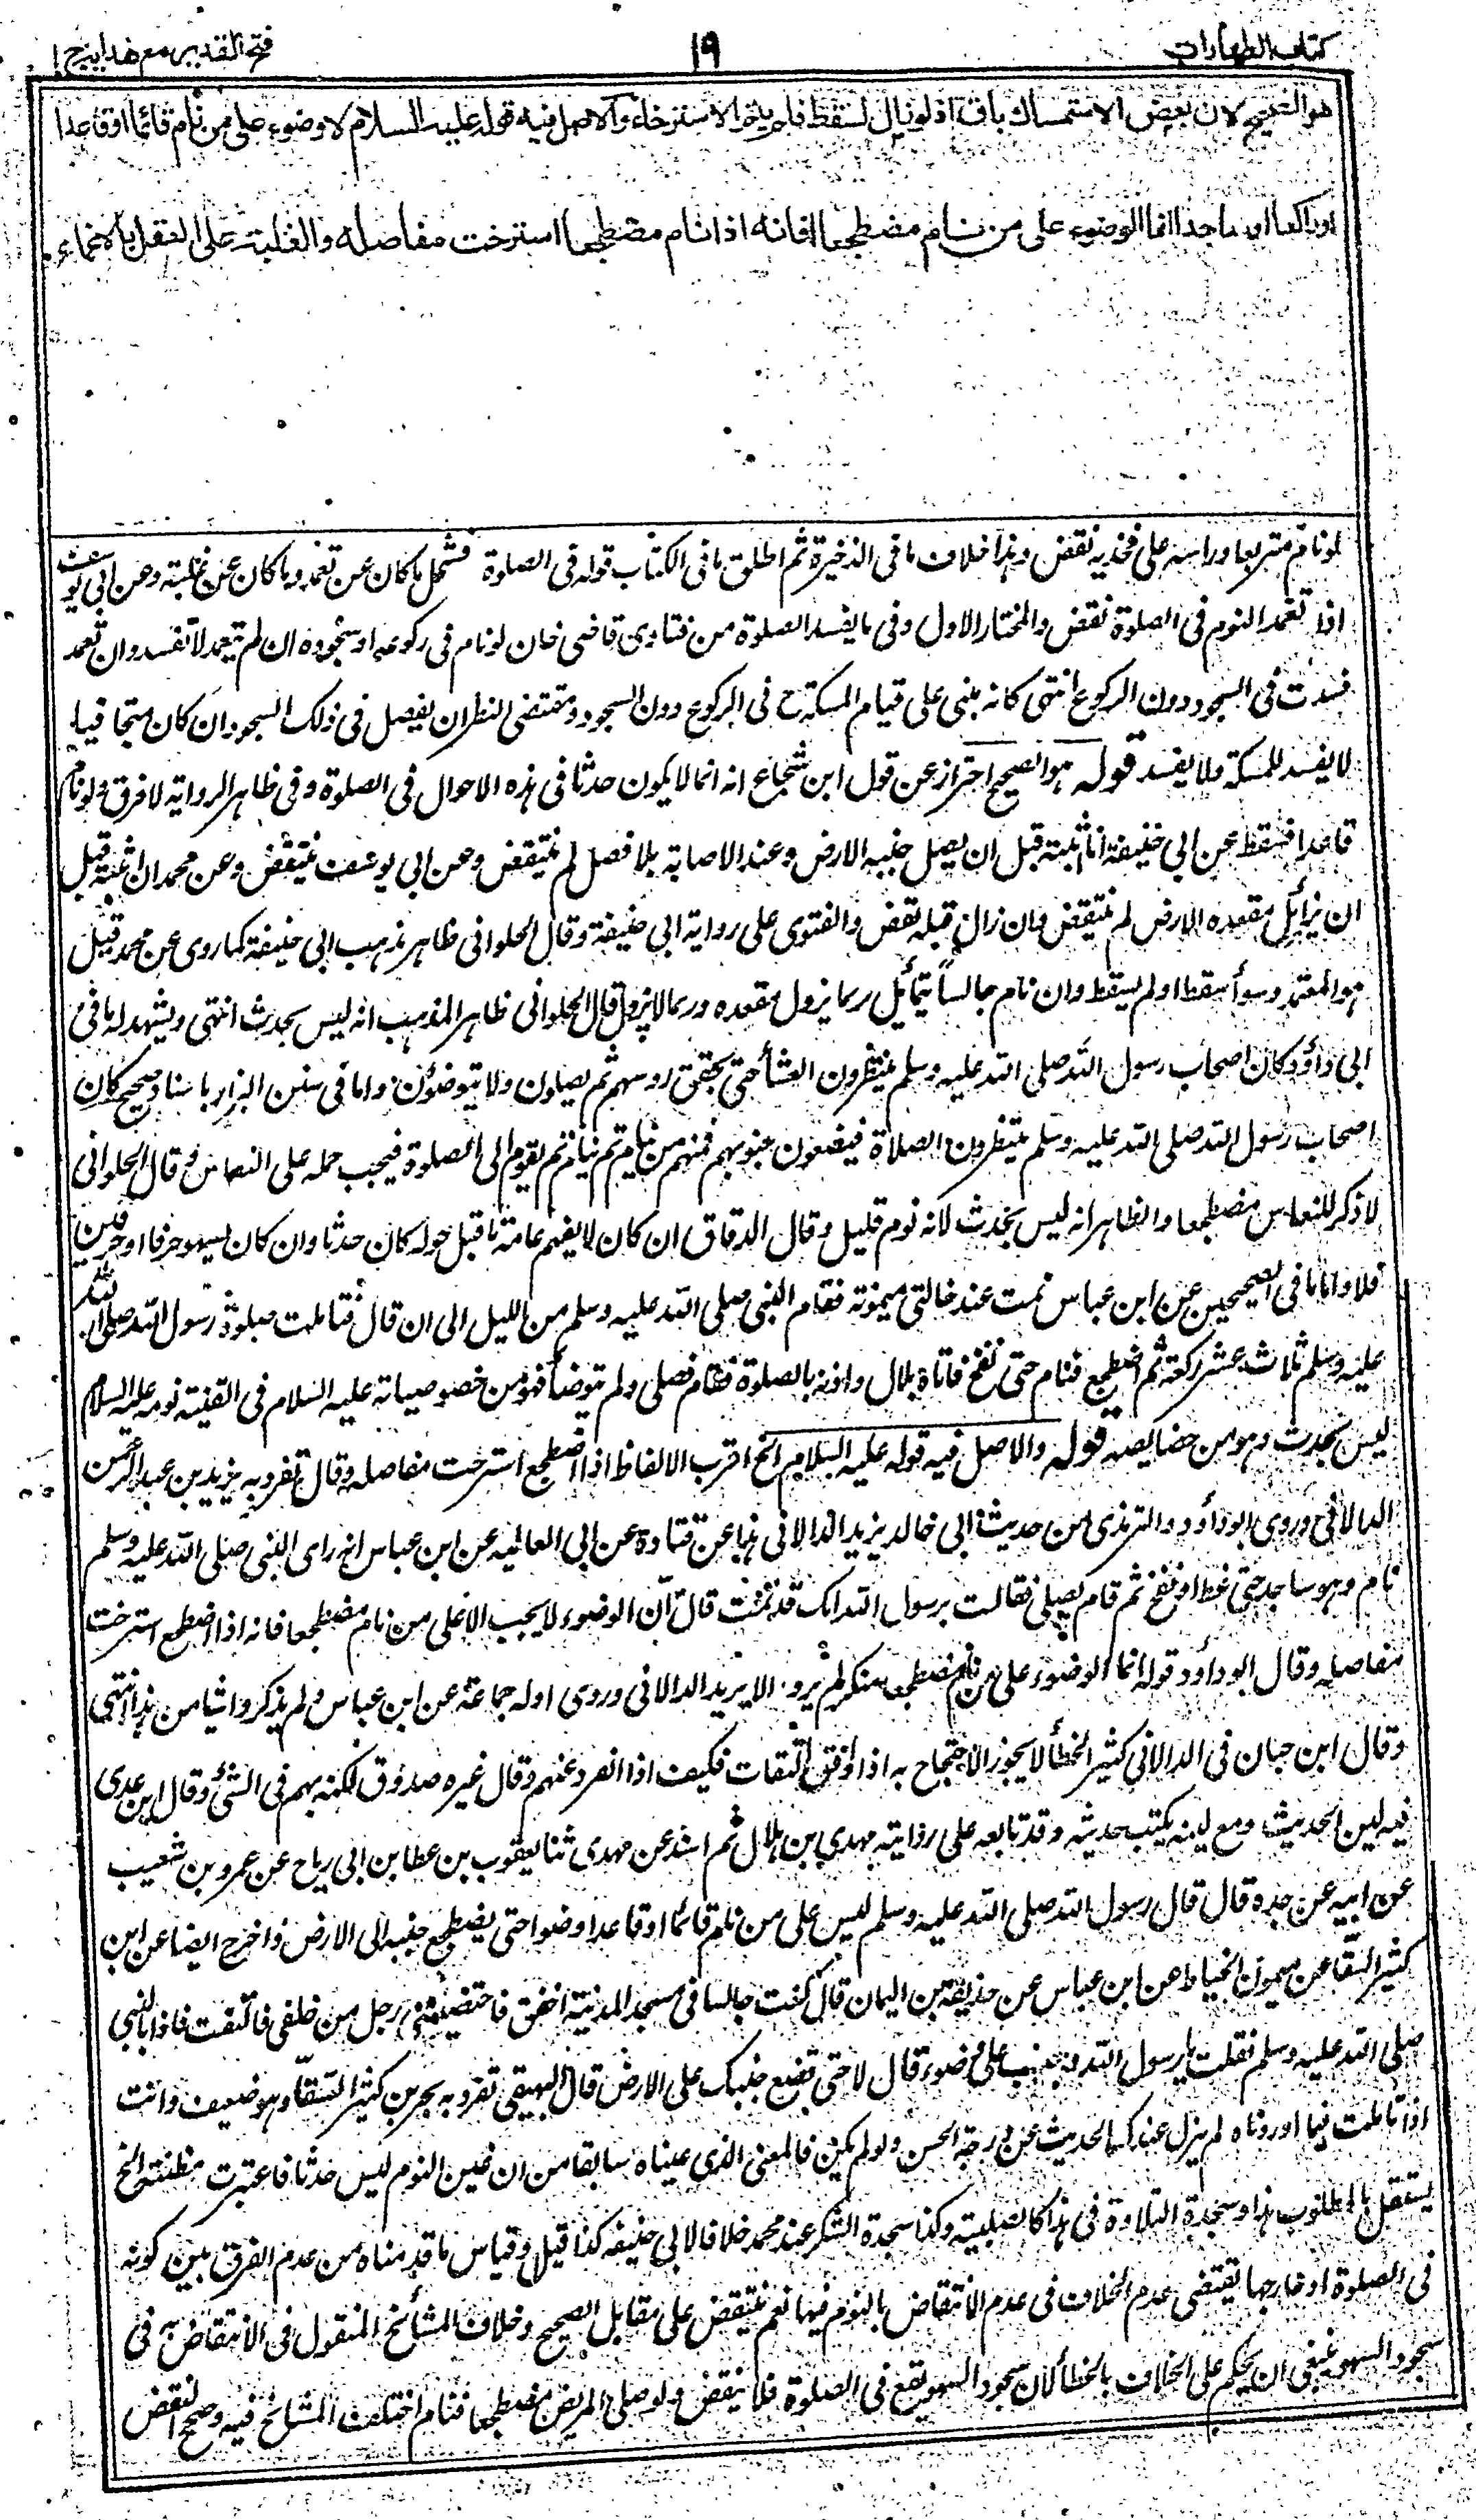 كتاب الطهارات
١٩
فتح القدير مع هدايه ج ١
هو الصحيح لان بعض الاستمساك باق اذ لو زال لسقط فلم يتم الاسترخاء والاصل فيه قوله عليه السلام لا وضوء على من نام قائما او قاعدا
او راكعا او ساجدا انما الوضوء على من نام مضطجعا فانه اذا نام مضطجعا استرخت مفاصله والغلبة على العقل بالاغماء
لو نام متربعا وراسه على فخذيه نقض وهذا خلاف ما فى الذخيرة ثم اطلق ما فى الكتاب قوله فى الصلوة فشمل ما كان عن تعمد وما كان عن غلبته وعن ابى يوسف
اذا تعمد النوم فى الصلوة نقض والمختار الاول وفى ما يفسد الصلوة من فتاوى قاضى خان لو نام فى ركوعه او سجوده ان لم يتعمد لا تفسد وان تعمد
فسدت فى السجود دون الركوع انتهى كانه مبنى على قيام المسكة ح فى الركوع دون السجود ومقتضى النظر ان يفصل فى ذلك السجود ان كان متجافيا
لا يفسد للمسكة ولا يفسد قوله هو الصحيح احتراز عن قول ابن شجاع انه انما لا يكون حدثا فى هذه الاحوال فى الصلوة وفى ظاهر الرواية لا فرق ولو نام
قاعدا فسقط عن ابى حنيفة ان انتبه قبل ان يصل جنبه الارض وعند الاصابة بلا فصل لم ينتقض وعن ابى يوسف ينتقض وعن محمد ان انتبه قبل
ان يزائل مقعده الارض لم ينتقض وان زال قبله نقض والفتوى على رواية ابى حنيفة وقال الحلوانى ظاهر مذهب ابى حنيفة كما روى عن محمد قيل
هو المعتمد وسوأ سقط او لم يسقط وان نام جالساً يتمائل ربما يزول مقعده وربما لا يزول قال الحلوانى ظاهر المذهب انه ليس بحدث انتهى ويشهد له ما فى
ابى داؤد كان اصحاب رسول الله صلى الله عليه وسلم ينتظرون العشأ حتى يخفق روسهم ثم يصلون ولا يتوضئون واما فى سنن البزار باسناد صحيح كان
اصحاب رسول الله صلى الله عليه وسلم ينتظرون الصلاة فيضعون جنوبهم فمنهم من ينام ثم يقوم الى الصلوة فيجب حمله على النعاس وقال الحلوانى
لا ذكر للنعاس مضطجعا والظاهر انه ليس بحدث لانه نوم قليل وقال الدقاق ان كان لا يفهم عامة ما قيل حوله كان حدثا وان كان يسهو حرفا او حرفين
فلا واما ما فى الصحيحين عن ابن عباس نمت عند خالتى ميمونة فقام النبى صلى الله عليه وسلم من الليل الى ان قال فتاملت صلوة رسول الله صلى الله
عليه وسلم ثلاث عشر ركعة ثم اضطجع فنام حتى نفخ فاتاه بلال واذنه بالصلوة فقام فصلى ولم يتوضأ فهو من خصوصياته عليه السلام فى القنية نومه عليه السلام
ليس بحدث وهو من خصايصه قوله والاصل فيه قوله عليه السلام الخ اقرب الالفاظ اذا اضطجع استرخت مفاصله وقال تفرد به يزيد بن عبد الرحمن
الدالانى وروى ابو داؤد والترمذى من حديث ابى خالد يزيد الدالانى هذا عن قتادة عن ابى العاليه عن ابن عباس انه راى النبى صلى الله عليه وسلم
نام وهو ساجد حتى غط او نفخ ثم قام يصلى فقالت يرسول الله انك قد نمت قال ان الوضوء لا يجب الا على من نام مضطجعا فانه اذا اضطجع استرخت
مفاصله وقال ابو داؤد قوله انما الوضوء على من نام مضطجعا منكر لم يروه الا يزيد الدالانى وروى اوله جماعة عن ابن عباس ولم يذكروا شيا من هذا انتهى
وقال ابن حبان فى الدالانى كثير الخطأ لا يجوز الاحتجاج به اذا وافق الثقات فكيف اذا انفرد عنهم وقال غيره صدوق لكنه يهم فى الشئ وقال ابن عدى
فيه لين الحديث ومع لينه يكتب حديثه وقد تابعه على روايته مهدى بن هلال ثم اسند عن مهدى ثنا يعقوب بن عطا بن ابى رباح عن عمرو بن شعيب
عن ابيه عن جده قال قال رسول الله صلى الله عليه وسلم ليس على من نام قائما او قاعدا وضوا حتى يضطجع جنبه الى الارض واخرج ايضا عن ابن
كثير السقا عن ميمون الخياط عن ابن عباس عن حذيفة بن اليمان قال كنت جالسا فى مسجد المدنية اخفق فاحتضنى رجل من خلفى فالتفت فاذا بالنبى
صلى الله عليه وسلم فقلت يا رسول الله وجب على وضوء قال لا حتى تضع جنبك على الارض قال البهيقى تفرد به بحر بن كثير السقا وهو ضعيف وانت
اذا تاملت فيما اوردناه لم ينزل عندك الحديث عن درجة الحسن ولو لم يكن فالمعنى الذى عيناه سابقا من ان عين النوم ليس حدثا فاعتبرت مظنته الخ
يستقل بالمطلوب هذا وسجدة التلاوة فى هذا كالصلبية وكذا سجدة الشكر عند محمد خلافا لابى حنيفه كذا قيل وقياس ما قدمناه من عدم الفرق بين كونه
فى الصلوة او خارجها يقتضى عدم الخلاف فى عدم الانتقاض بالنوم فيها نعم ينتقض على مقابل الصحيح وخلاف المشائخ المنقول فى الانتقاض به فى
سجود السهو ينبغى ان يحكم على الخلاف بالخطأ لان سجود السهو يقع فى الصلوة فلا ينقض ولو صلى المريض مضطجعا فنام اختلف المشائخ فيه وصحح النقض